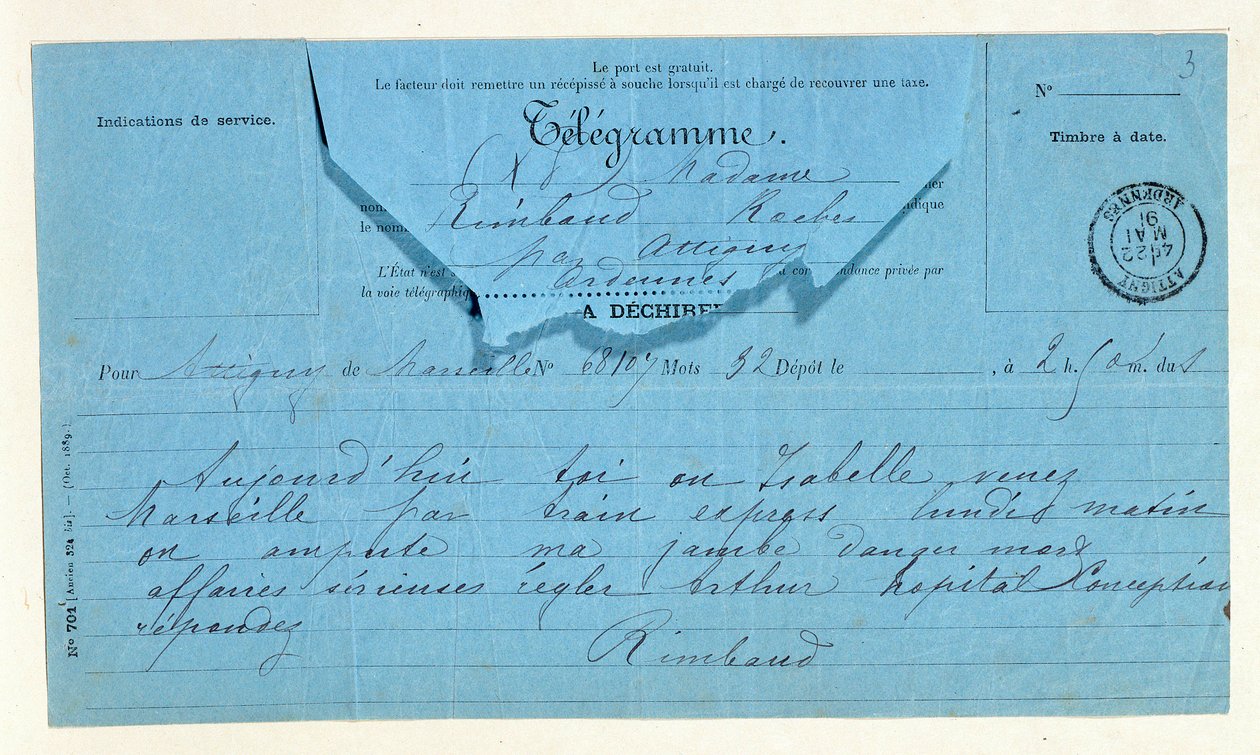 3
Le port est gratuit.
Le facteur doit remettre un récépissé à souche lorsqu'il est chargé de recouvrer une taxe.
Indications de service.
Télégramme.
Nº
Timbre à date.
Madame
Rimbaud Roches
par Attigny
Ardennes
non
le nom
dique
L'État n'est
dance privée par
la voie télégraphiq
A DÉCHIRE
ATTIGNY
22
MAI
91
ARDENNES
Pour Attigny de Marseille Nº 68107 Mots 32 Dépôt le , à 2 h. 50 m. du s
Aujourd'hui toi ou Isabelle venez
Marseille par train express lundi matin
on ampute ma jambe danger mort
affaires sérieuses régler Arthur hopital Conception
répondez
Rimbaud
Nº 701 [Ancien 324 bis]. — (Oct. 1889.)